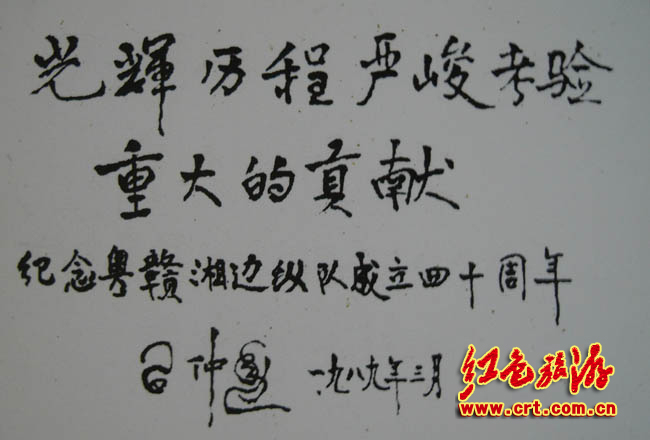 光輝历程严峻考验
重大的貢献
纪念粤贛湘边纵队成立四十周年
一九八九年三月
红色旅游
www.crt.com.cn